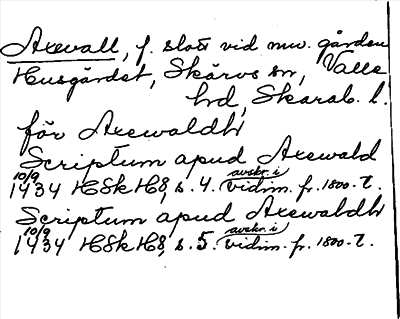 Axevall, f. slott vid nuv. gården
Husgärdet, Skärvs sn, Valle
hd, Skarab. l.
för Axewaldh
Scriptum apud Axewald
10/9 1434 HSkH8, s. 4. avskr. i vidim. fr. 1800-t.
Scriptum apud Axewaldh
10/9 1434 HSkH8, s. 5. avskr. i vidim. fr. 1800-t.